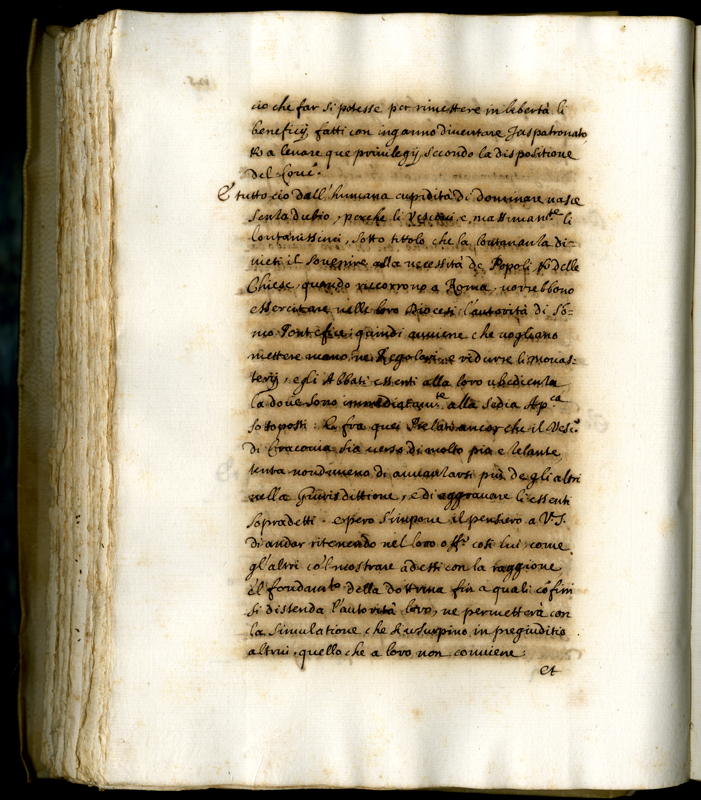 ciò che far si potesse per rimettere in libertà li
beneficij fatti con inganno diventare Juspatronato,
et a levare que privilegij, secondo la dispositione
del Conc.º
E tutto ciò dall'humana cupidità di dominare nasce
senza dubio, perche li Vescovi, e, massiman.te li
lontanissimi, sotto titolo che la lontananza di=
vieti il souenire alla necessità de Popoli, et delle
Chiese, quando ricorrono a Roma, uorrebbono
essercitare nelle loro Diocesi l'autorità di So=
mo Pontefice; quindi auuiene che uogliano
mettere mano ne Regolari, e ridurre li monas=
terij, e gli Abbati essenti alla loro ubedienza
la doue sono immediatam.te alla sedia Ap.ca
sottoposti: Et fra quei Prelati ancor che il Vesc.º
di Cracouia sia uerso di molto pia e zelante,
tenta nondimeno di auuantarsi più de gli altri
nella Giurisdittione, e di aggrauare li essenti
sopradetti. e però s'impone il pensiero a V.S.
di andar ritenendo nel loro off.º cosi lui, come
gl'altri co'l mostrare ad essi con la raggione
e'l fondam.to della dottrina fin a quali cõfini
si distenda l'autorità loro, ne permetterà con
la simulatione che si usurpino in pregiuditio
altrui, quello che a loro non conuiene;
et